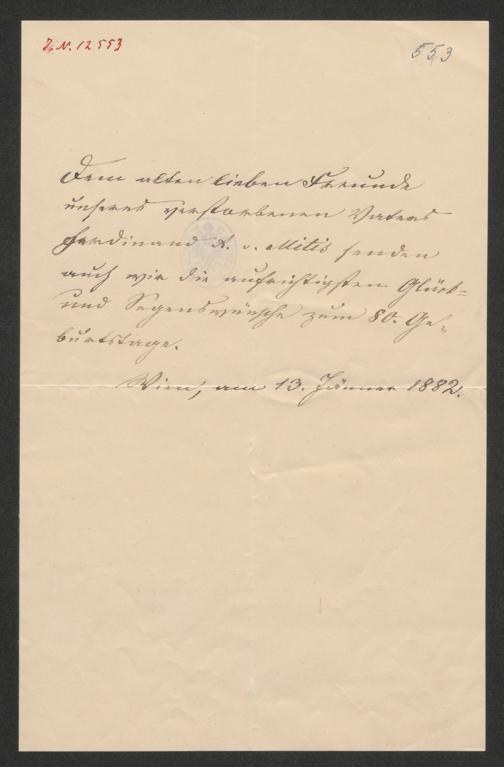 J. N. 12553
553
Dem alten lieben Freunde
unseres verstorbenen Vaters
Ferdinand A. v. Mitis senden
auch wir die aufrichtigsten Glück-
und Segenswünsche zum 80. Ge-
burtstage.
Wien, am 13. Jänner 1882.